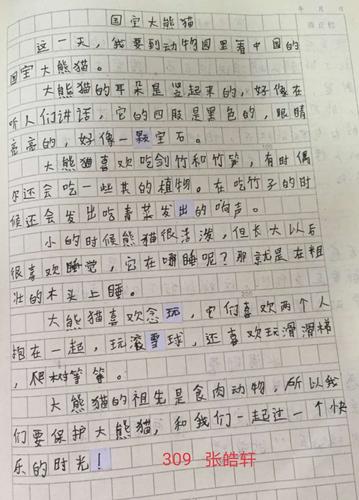 国宝大熊猫
这一天，我要到动物园里看中国的
国宝大熊猫。
大熊猫的耳朵是竖起来的，好像在
听人们讲话，它的四肢是黑色的，眼睛
亮亮的，好像一颗宝石。
大熊猫喜欢吃剑竹和竹笋，有时偶
尔还会吃一些其的植物。在吃竹子的时
候还会发出吃青菜发出的响声。
小的时候熊猫很活泼，但长大以后
很喜欢睡觉，它在哪睡呢？那就是在粗
壮的木头上睡。
大熊猫喜欢玩，它们喜欢两个人
抱在一起，玩滚雪球，还喜欢玩滑滑梯
，爬树等等。
大熊猫的祖先是食肉动物，所以我
们要保护大熊猫，和我们一起过一个快
乐的时光！
309 张皓轩